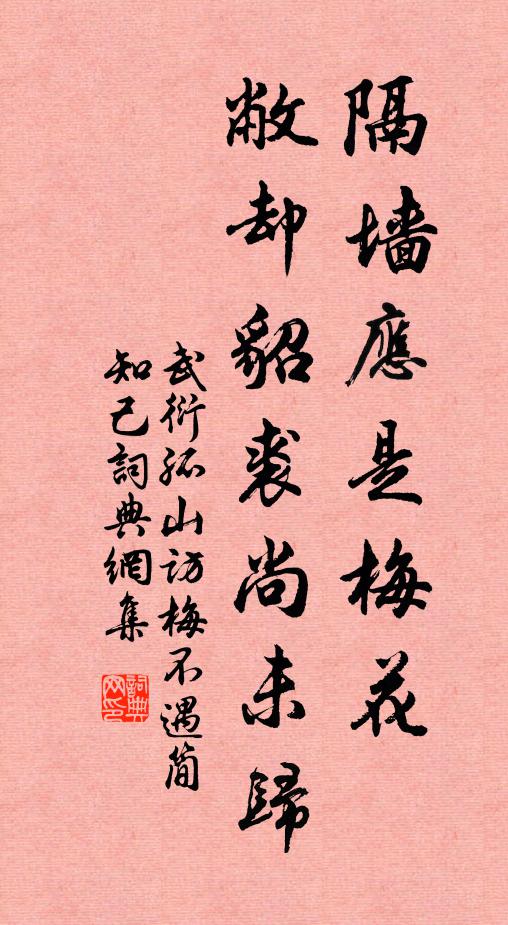 隔墙應是梅花
敝却貂裘尚未歸
武衍孤山访梅不遇簡
知己詞典網集
詞典
网印